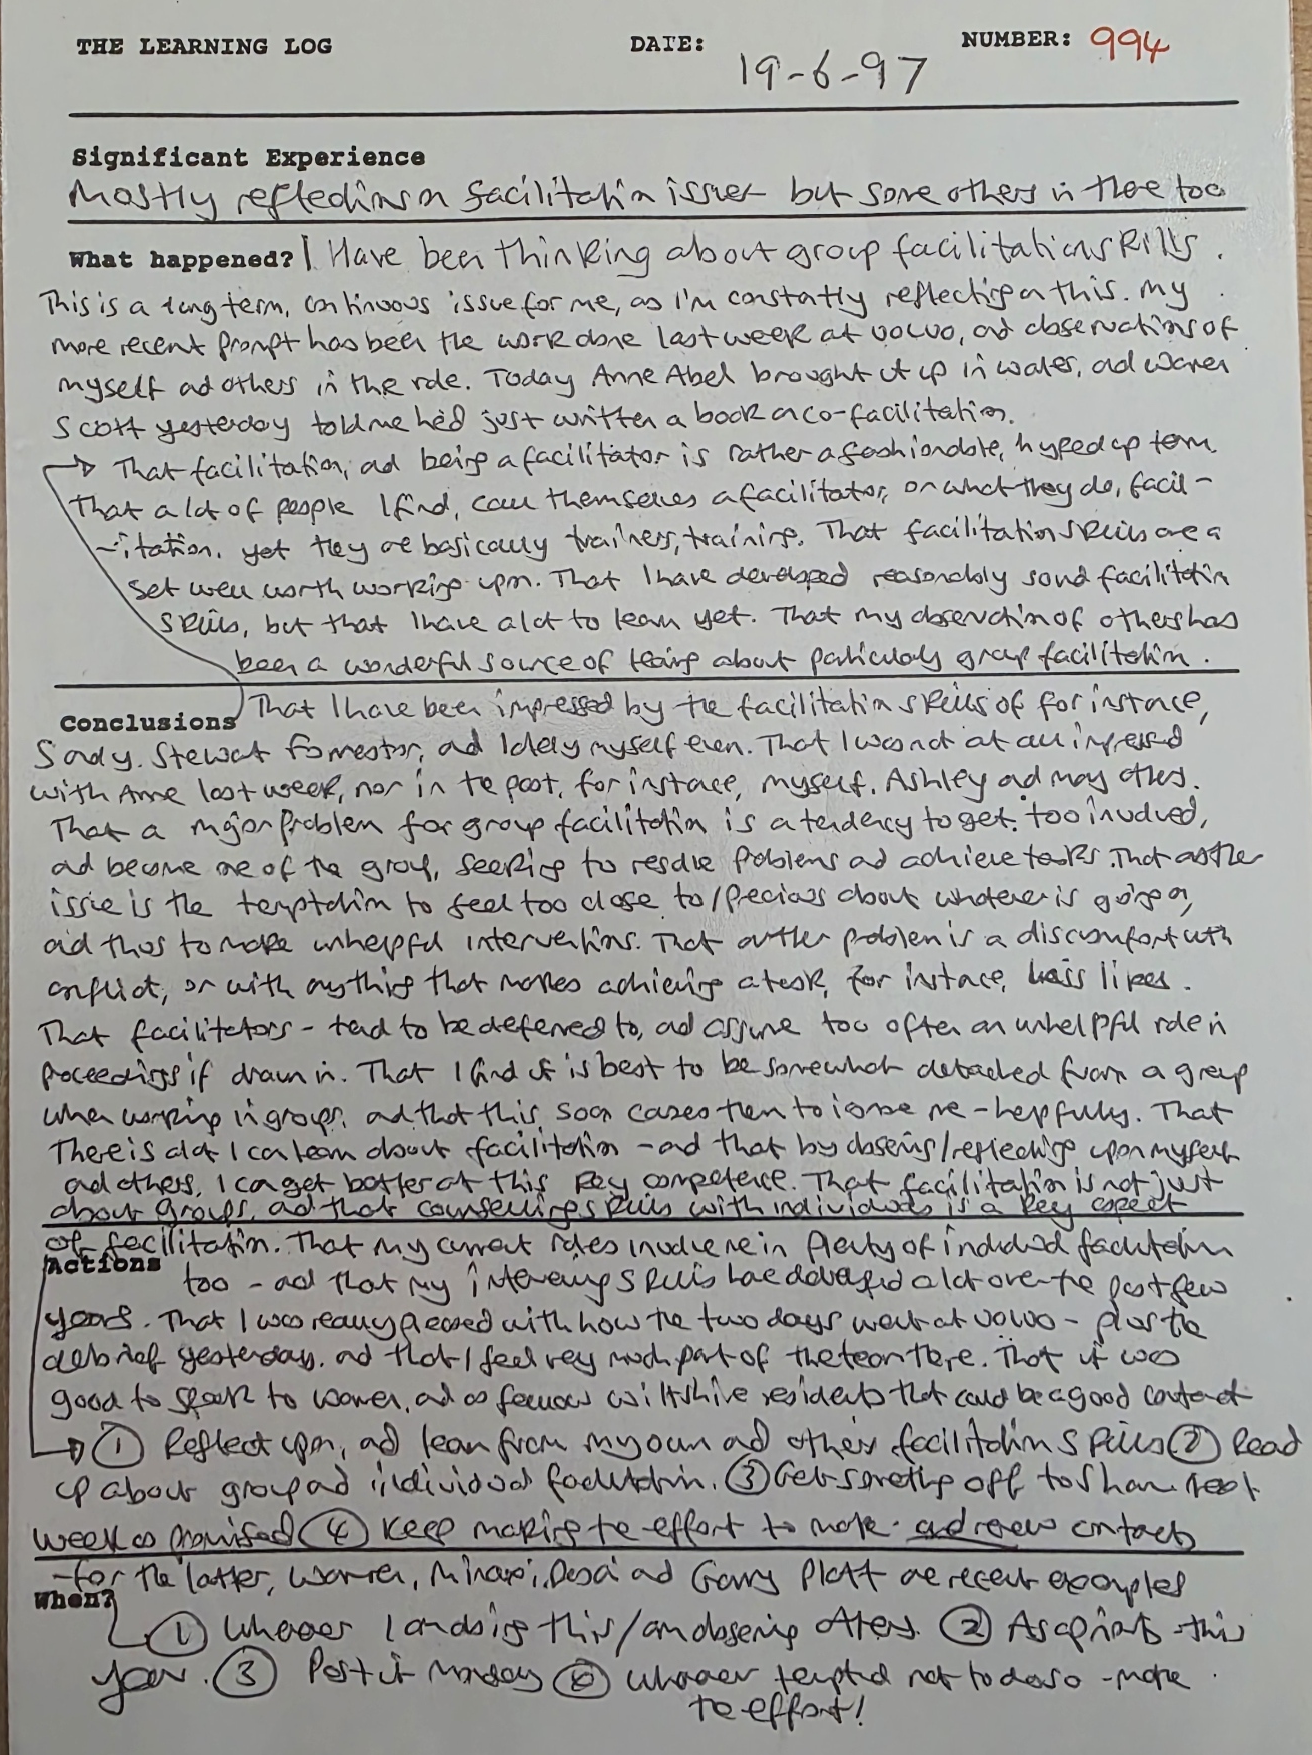 THE LEARNING LOG DATE: 19-6-97 NUMBER: 994
Significant Experience
Mostly reflections on facilitation issues but some others in there too
What happened? I Have been thinking about group facilitation skills.
This is a long term, continuous issue for me, as I'm constantly reflecting on this. My
more recent prompt has been the work done last week at Volvo, and observations of
myself and others in the role. Today Anne Abel brought it up in Wales, and Warren
Scott yesterday told me he'd just written a book on co-facilitation.
→ That facilitation, and being a facilitator is rather a fashionable, hyped up term.
That a lot of people I find, call themselves a facilitator, or what they do, facil-
-itation. Yet they are basically trainers, training. That facilitation skills are a
set well worth working upon. That I have developed reasonably sound facilitation
skills, but that I have a lot to learn yet. That my observation of others has
been a wonderful source of learning about particularly group facilitation.
Conclusions That I have been impressed by the facilitation skills of for instance,
Sandy. Stewart Forrester, and lately myself even. That I was not at all impressed
with Anne last week, nor in the past, for instance, myself. Ashley and many others.
That a major problem for group facilitation is a tendency to get too involved,
and become one of the group, seeking to resolve problems and achieve tasks. That another
issue is the temptation to feel too close to/precious about whatever is going on,
and thus to make unhelpful interventions. That another problem is a discomfort with
conflict, or with anything that makes achieving a task, for instance, less likely.
That facilitators - tend to be deferred to, and assume too often an unhelpful role in
proceedings if drawn in. That I find it is best to be somewhat detached from a group
when working in groups, and that this soon causes them to ignore me - helpfully. That
There is a lot I can learn about facilitation - and that by observing/reflecting upon myself
and others, I can get better at this key competence. That facilitation is not just
about groups, and that counselling skills with individuals is a key aspect
of facilitation. That my current roles involve me in plenty of individual facilitation
Actions too - and that my intervening skills have developed a lot over the past few
years. That I was really pleased with how the two days went at Volvo - plus the
debrief yesterday, and that I feel very much part of the team there. That it was
good to speak to Warren, and as fellow Wiltshire residents that could be a good contact
→ ① Reflect upon, and learn from my own and others facilitation skills ② Read
up about group and individual facilitation. ③ Get something off to Shan next
week as promised ④ Keep making the effort to make and renew contacts
- for the latter, Warren, and Garry Platt are recent examples
When?
① Whenever I am doing this/am observing others. ② As a priority - this
year. ③ Post it Monday ④ Whenever tempted not to do so - make
the effort!